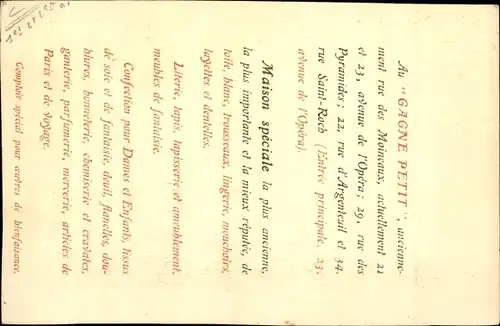 Au "GAGNE PETIT", ancienne-
ment rue des Moineaux, actuellement 21
et 23, avenue de l'Opéra; 29, rue des
Pyramides; 22, rue d'Argenteuil et 34,
rue Saint-Roch (Entrée principale, 23,
avenue de l'Opéra).
Maison spéciale la plus ancienne,
la plus importante et la mieux réputée, de
toile, blanc, trousseaux, lingerie, mouchoirs,
layettes et dentelles.
Literie, tapis, tapisserie et ameublement,
meubles de fantaisie.
Confection pour Dames et Enfants, tissus
de soie et de fantaisie, deuil, flanelles, dou-
blures, bonneterie, chemiserie et cravates,
ganterie, parfumerie, mercerie, articles de
Paris et de voyage.
Comptoir spécial pour œuvres de bienfaisance.